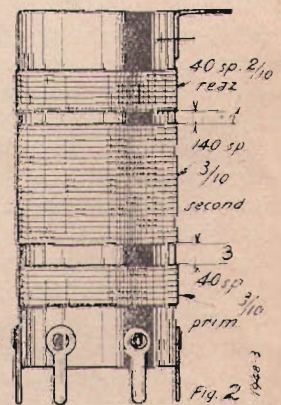 40 sp. 2/10
reaz
1
140 sp
3/10
second
3
40 sp
3/10
prim
Fig. 2
1948-3